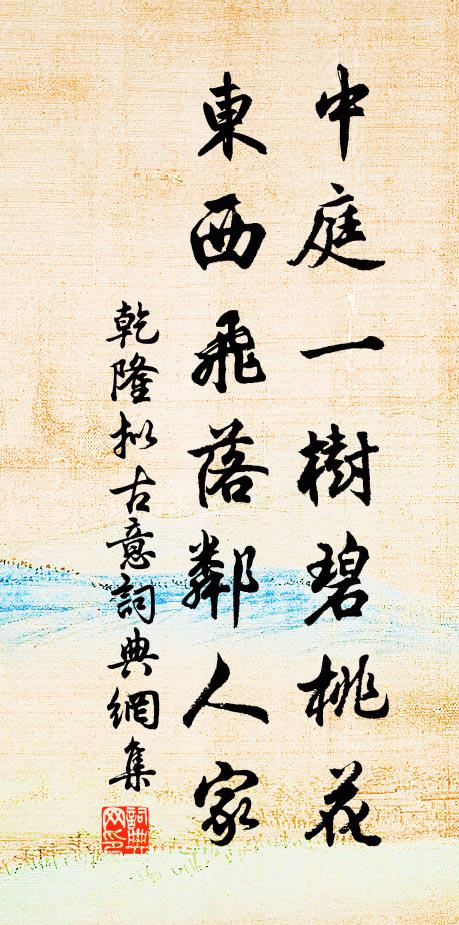 中庭一樹碧桃花
東西飛落鄰人家
乾隆拟古意詞典網集
詞典网印